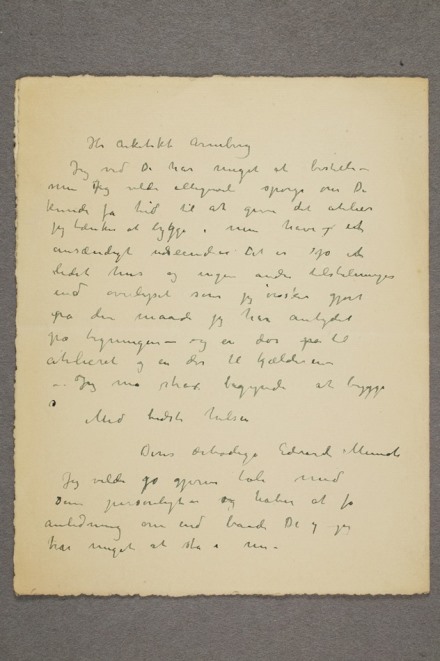 Hr Arkitekt Arneberg
Jeg ved De har meget at bestille –
men Jeg vilde alligevel spørge om De
kunde få tid til at gøre det atelier
jeg tænker at bygge, men have et
anstændigt udseende. Det er jo et
stedet hus og ingen andre tilstelninger
end overlyset som jeg ønsker gjort
på den maade jeg har antydet
på tegningen – og en dør til
atelieret og en dør til kjælderen
– Jeg må straks begynde at bygge
Med bedste hilsen
Deres ærbødige Edvard Munch
Jeg vilde jo gjerne tale med
Dem personligt og håber at få
anledning om end baade De og jeg
har meget at stå i nu –